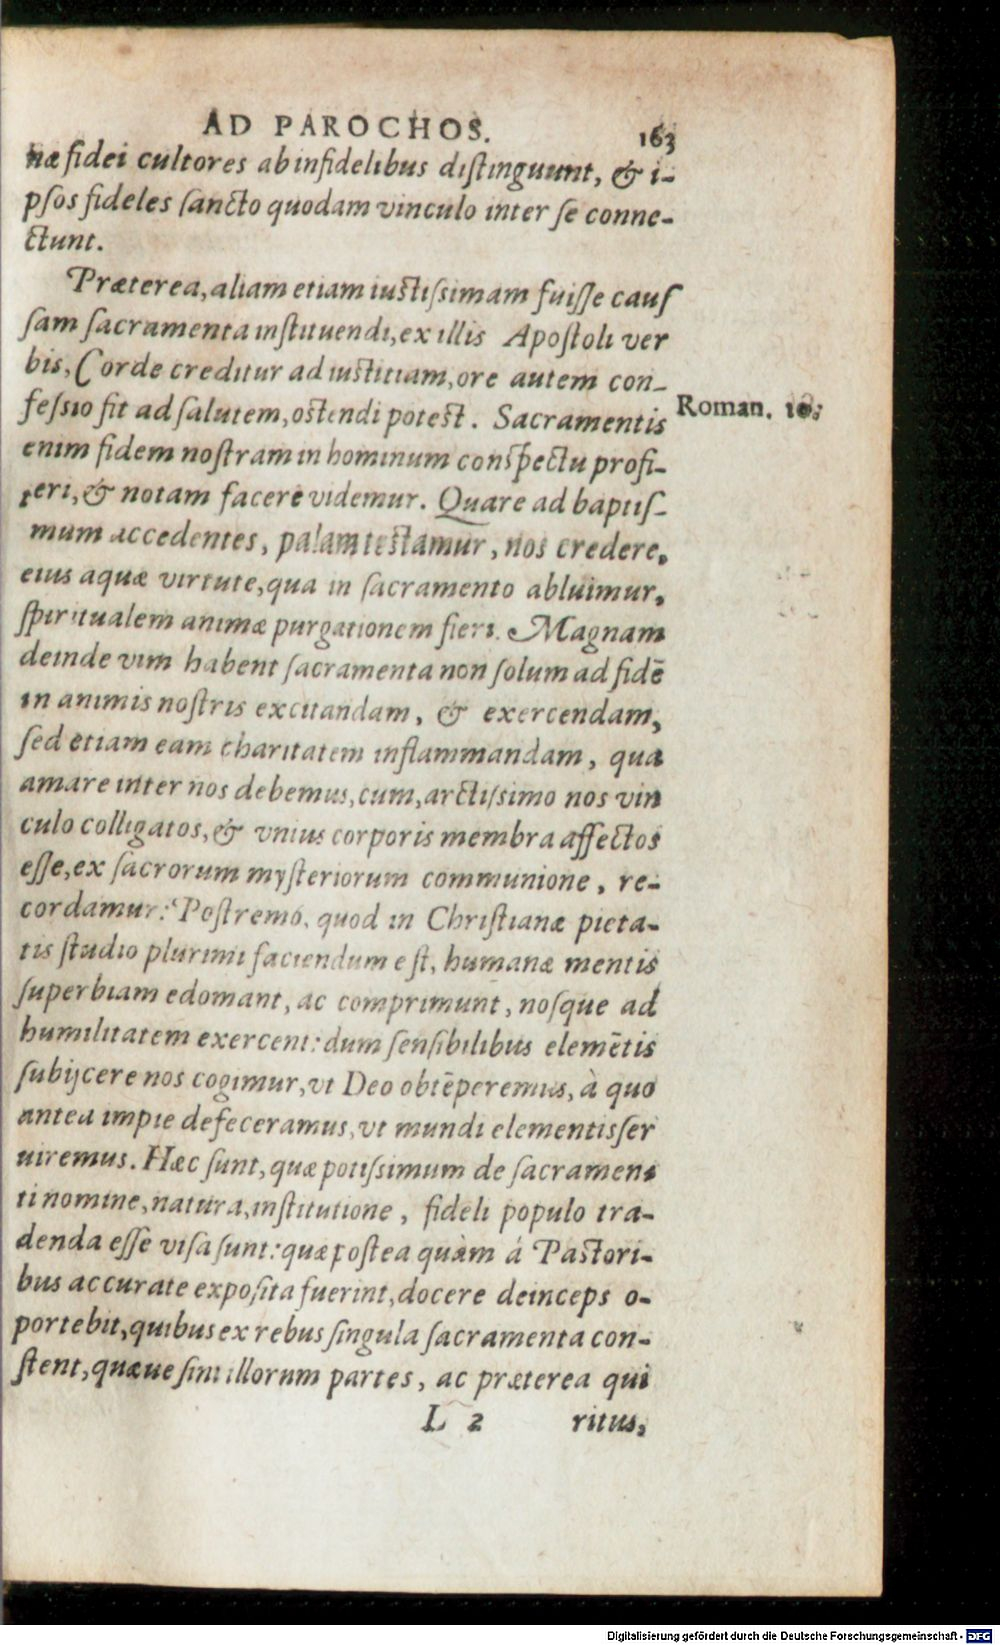 AD PAROCHOS. 163
næ fidei cultores ab infidelibus distinguunt, & i-
psos fideles sancto quodam vinculo inter se conne-
ctunt.
Præterea, aliam etiam iustissimam fuisse caus
sam sacramenta instituendi, ex illis Apostoli ver
bis, Corde creditur ad iustitiam, ore autem con-
fessio fit ad salutem, ostendi potest. Sacramentis
Roman. 10.
enim fidem nostram in hominum conspectu profi-
teri, & notam facere videmur. Quare ad baptis-
mum accedentes, palam testamur, nos credere,
eius aquæ virtute, qua in sacramento abluimur,
spiritualem animæ purgationem fieri. Magnam
deinde vim habent sacramenta non solum ad fidē
in animis nostris excitandam, & exercendam,
sed etiam eam charitatem inflammandam, qua
amare inter nos debemus, cum, arctissimo nos vin
culo colligatos, & vnius corporis membra affectos
esse, ex sacrorum mysteriorum communione, re-
cordamur: Postremò, quod in Christianæ pieta-
tis studio plurimi faciendum est, humanæ mentis
superbiam edomant, ac comprimunt, nosque ad
humilitatem exercent: dum sensibilibus elemētis
subijcere nos cogimur, vt Deo obtēperemus, à quo
antea impie defeceramus, vt mundi elementis ser
uiremus. Hæc sunt, quæ potissimum de sacramen
ti nomine, natura, institutione, fideli populo tra-
denda esse visa sunt: quæ postea quàm á Pastori-
bus accurate exposita fuerint, docere deinceps o-
portebit, quibus ex rebus singula sacramenta con-
stent, quæue sint illorum partes, ac præterea qui
L 2 ritus,
Digitalisierung gefördert durch die Deutsche Forschungsgemeinschaft - DFG